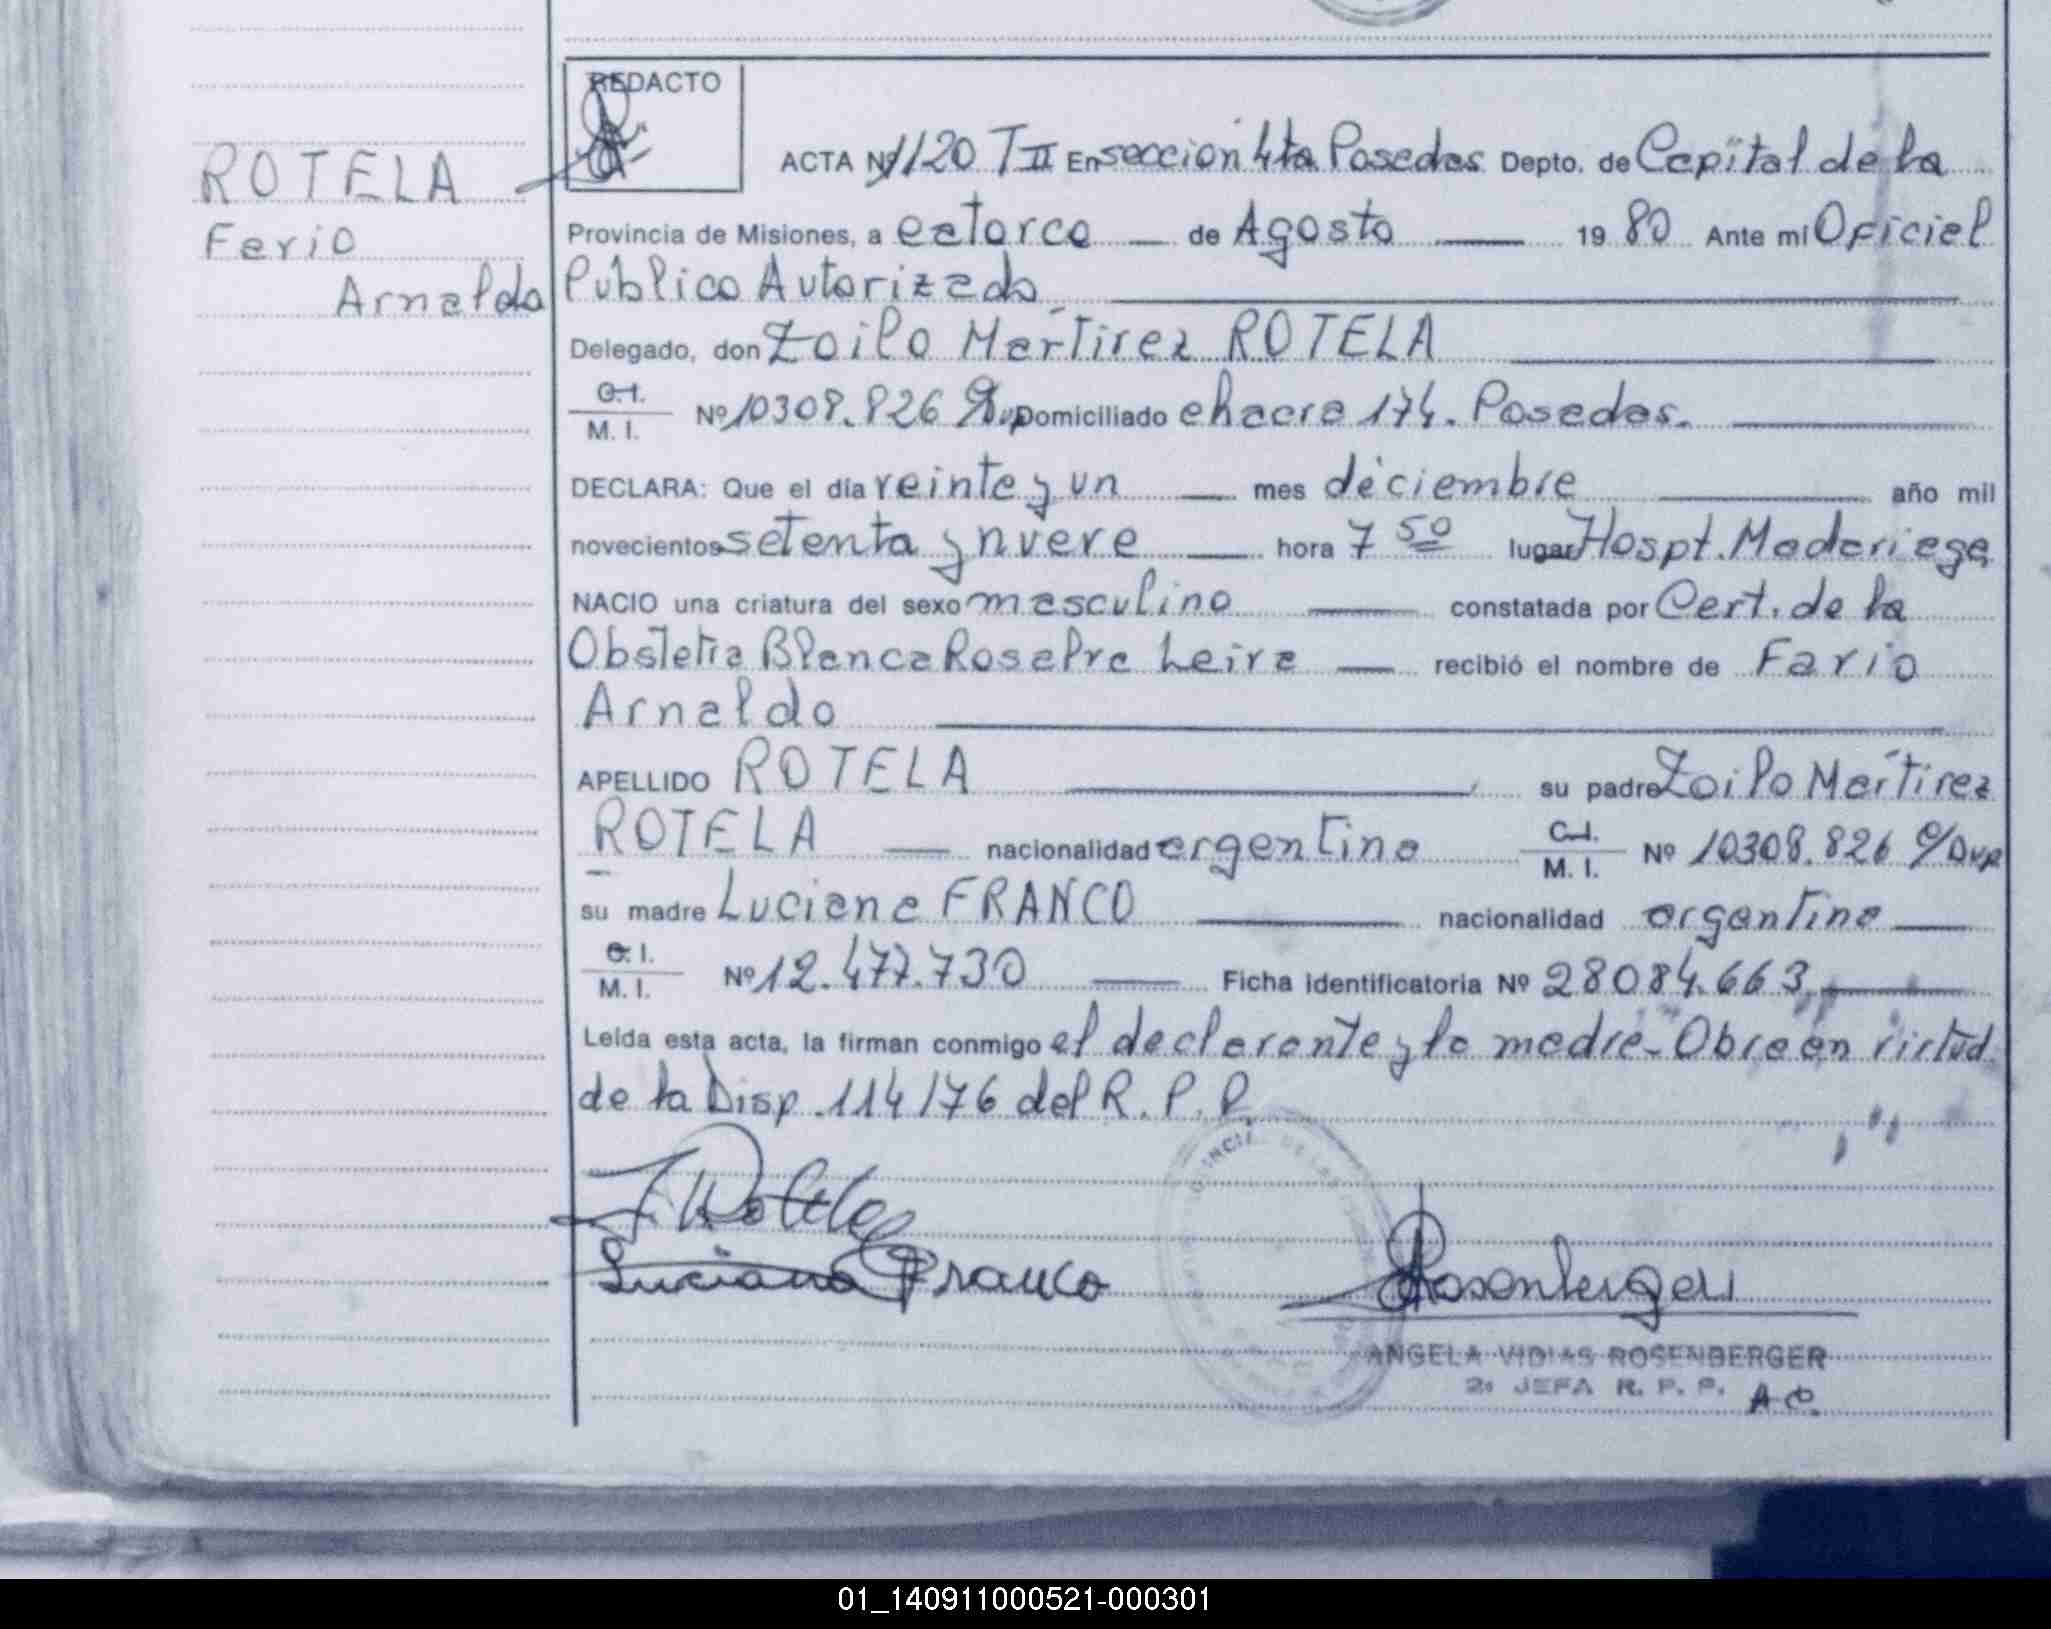 REDACTO
ROTELA
Fario
Arnaldo
ACTA Nº 1120 T II En seccion 4ta Posadas Depto. de Capital de la
Provincia de Misiones, a catorce de Agosto 1980 Ante mi Oficial
Publico Autorizado
Delegado, don Zoilo Martirez ROTELA
C.I. M. I. Nº 10308.826 Dup Domiciliado chacra 174. Posadas.
DECLARA: Que el día veinte y un mes diciembre año mil
novecientos setenta y nueve hora 7 50 lugar Hospt. Madariaga
NACIO una criatura del sexo masculino constatada por Cert. de la
Obstetra Blanca Rosa Leiva recibió el nombre de Fario
Arnaldo
APELLIDO ROTELA su padre Zoilo Martirez
ROTELA nacionalidad argentino C.I. M. I. Nº 10308.826 c/Dup
su madre Luciana FRANCO nacionalidad argentina
C.I. M. I. Nº 12.477.730 Ficha identificatoria Nº 28084.663
Leída esta acta, la firman conmigo el declarante y la madre - Obra en virtud
de la Disp. 114/76 del R. P. P.
Luciana Franco
Rosenberger
ANGELA VIDIAS ROSENBERGER
2ª JEFA R. P. P.
01_140911000521-000301